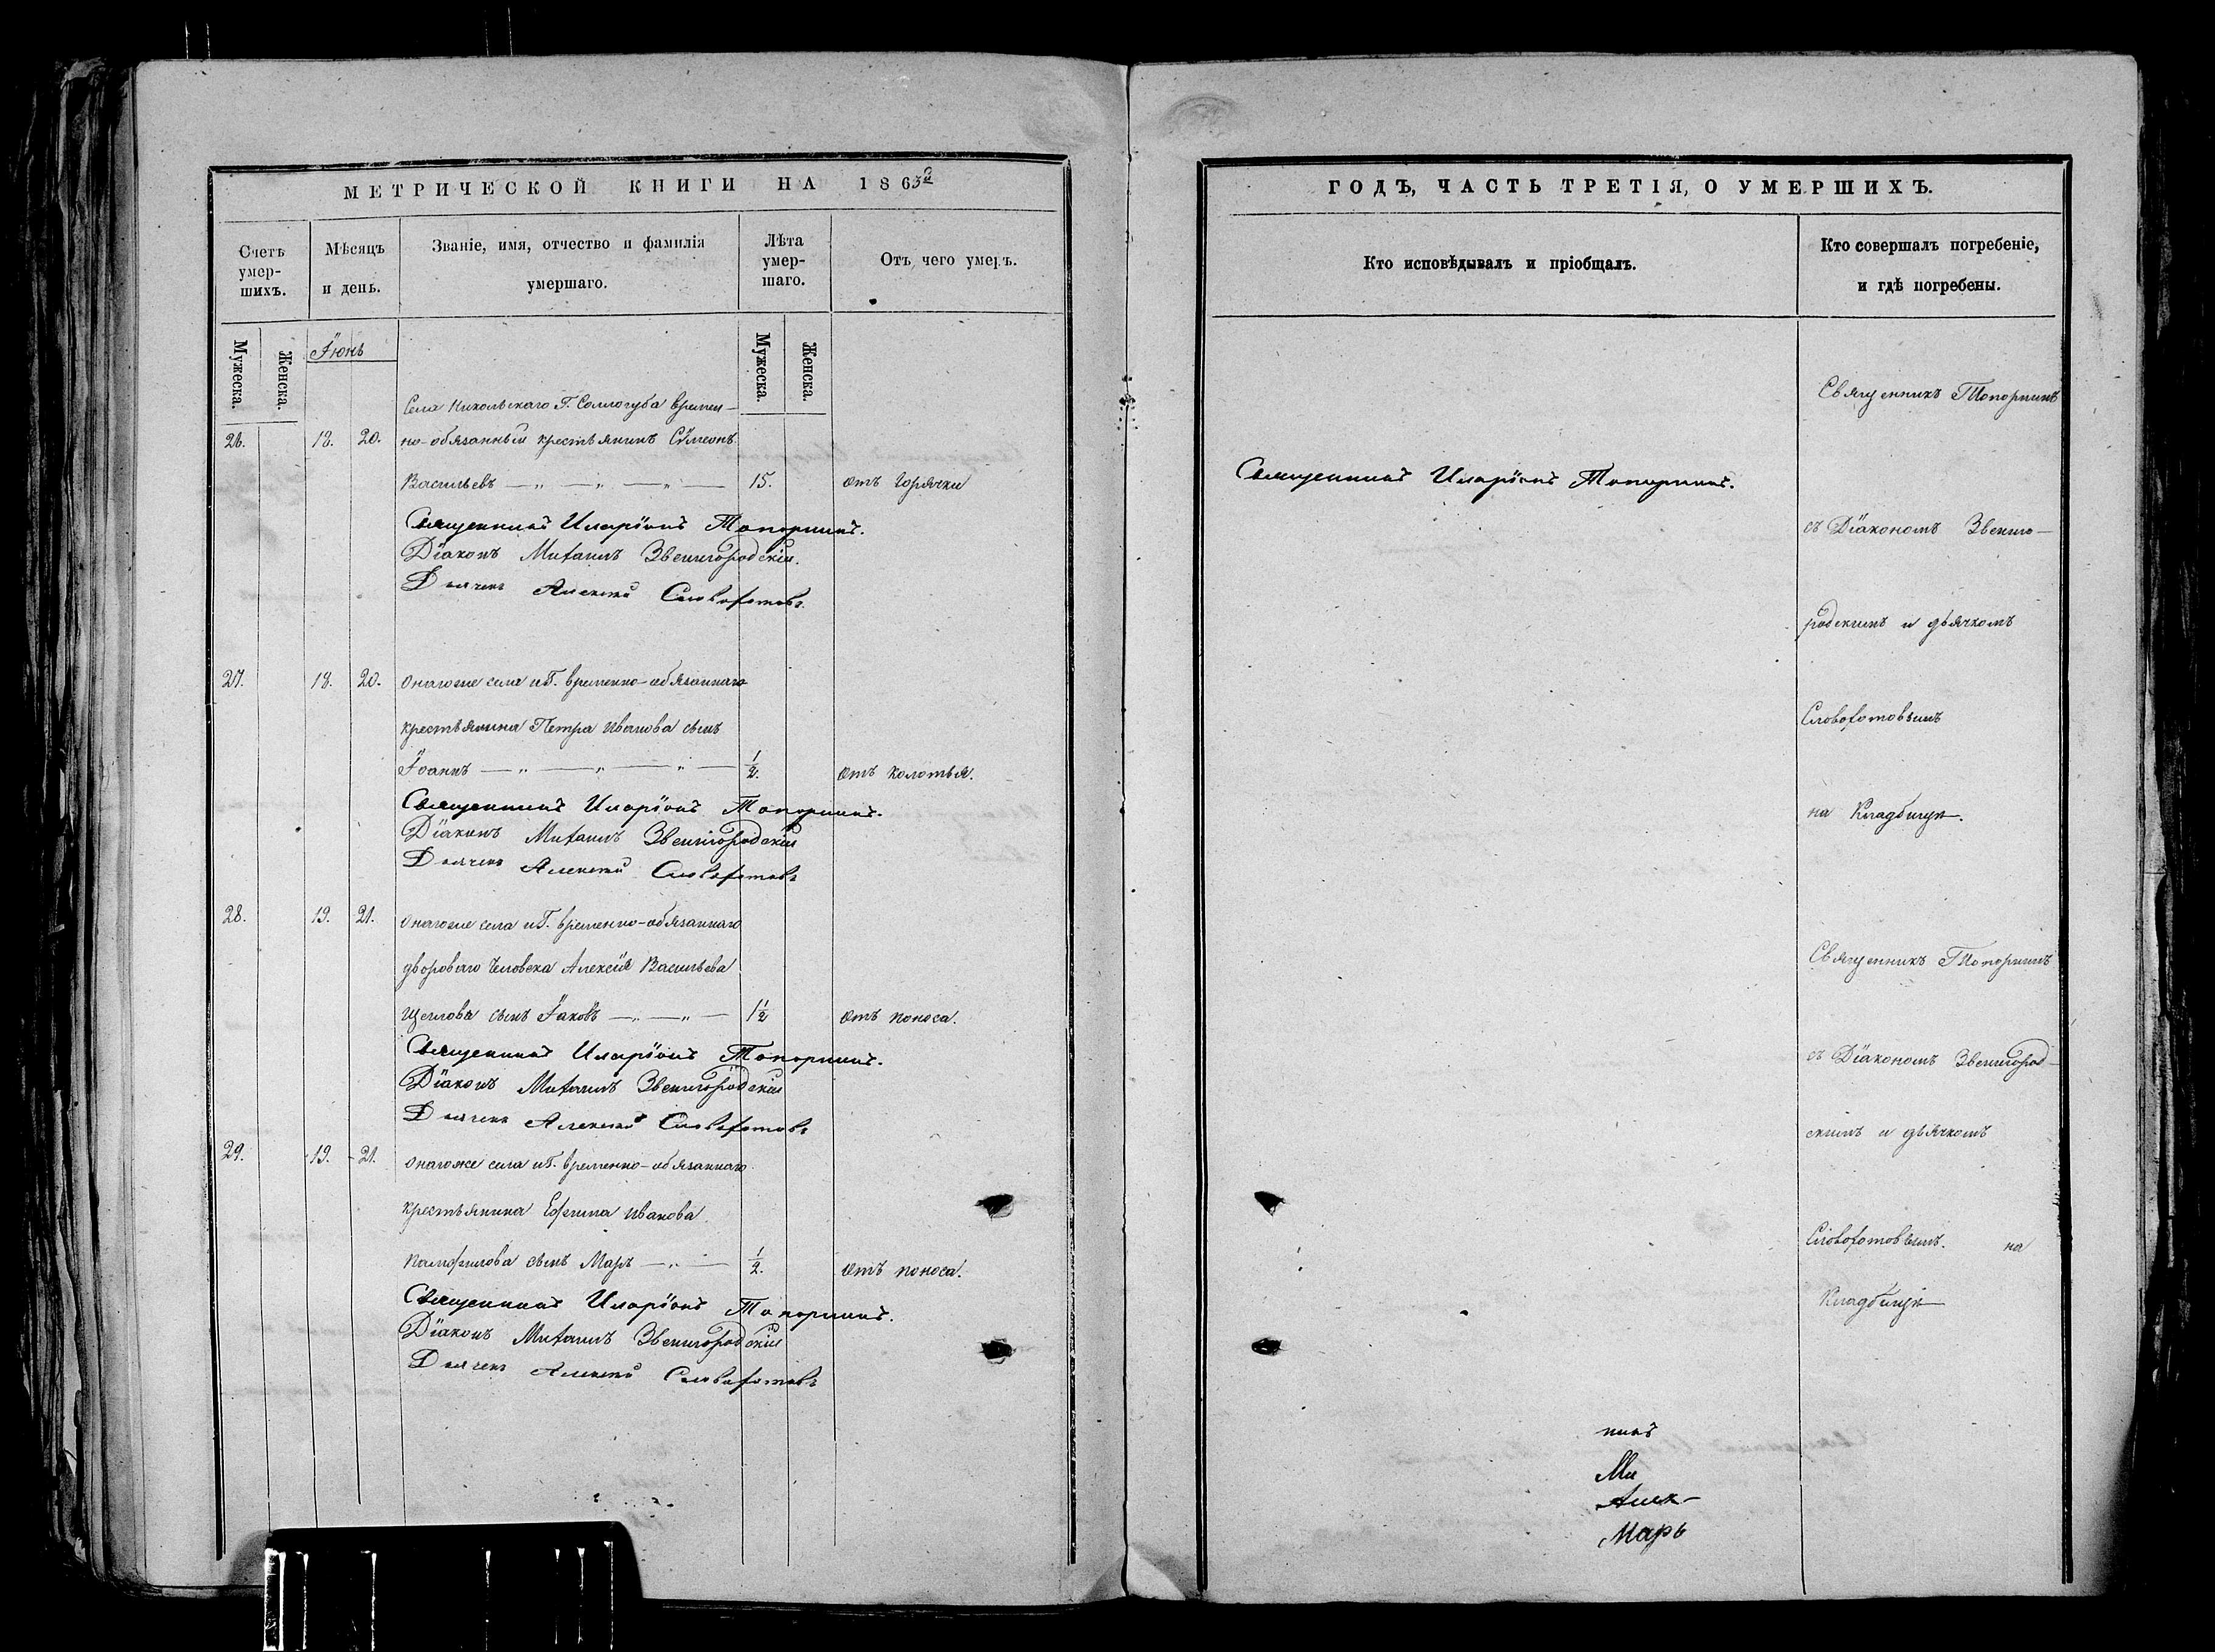 МЕТРИЧЕСКОЙ КНИГИ НА 1863й
Счетъ умер-шихъ.
Мѣсяцъ и день.
Званіе, имя, отчество и фамилія умершаго.
Лѣта умер-шаго.
Отъ чего умеръ.
Мужеска. Женска.
Іюнь
Мужеска. Женска.
Села Никольскаго Г. Соллогуба времен-
26. 18. 20. но-обязанный крестьянинъ Сѵмеонъ
Васильевъ — „ — „ — „ — 15. отъ горячки
Священникъ Иларіонъ Топорнинъ.
Діаконъ Михаилъ Звенигородскій.
Дьячекъ Алексѣй Словохотовъ.
27. 18. 20. Онагоже села и Г. временно-обязаннаго
крестьянина Петра Иванова сынъ
Іоаннъ — „ — „ — „ — 1/2. отъ колотья.
Священникъ Иларіонъ Топорнинъ.
Діаконъ Михаилъ Звенигородскій
Дьячекъ Алексѣй Словохотовъ
28. 19. 21. Онагоже села и Г. временно-обязаннаго
двороваго человека Алексѣя Васильева
Щеглова сынъ Іаковъ — „ — „ — 1 1/2 отъ поноса.
Священникъ Иларіонъ Топорнинъ.
Діаконъ Михаилъ Звенигородскій
Дьячекъ Алексѣй Словохотовъ
29. 19. 21. Онагоже села и Г. временно-обязаннаго
крестьянина Ефима Иванова
Памфилова сынъ Маръ — „ — 1/2. отъ поноса.
Священникъ Иларіонъ Топорнинъ.
Діаконъ Михаилъ Звенигородскій
Дьячекъ Алексѣй Словохотовъ
ГОДЪ, ЧАСТЬ ТРЕТІЯ, О УМЕРШИХЪ.
Кто исповѣдывалъ и пріобщалъ.
Кто совершалъ погребеніе,
и гдѣ погребены.
Священникъ Топорнинъ
Священникъ Иларіонъ Топорнинъ.
съ Діакономъ Звениго-
родскимъ и дьячкомъ
Словохотовымъ
на Кладбищѣ.
Священникъ Топорнинъ
съ Діакономъ Звенигород-
скимъ и дьячкомъ
Словохотовымъ. на
Кладбищѣ
никъ
Ми
Алек-
Марь